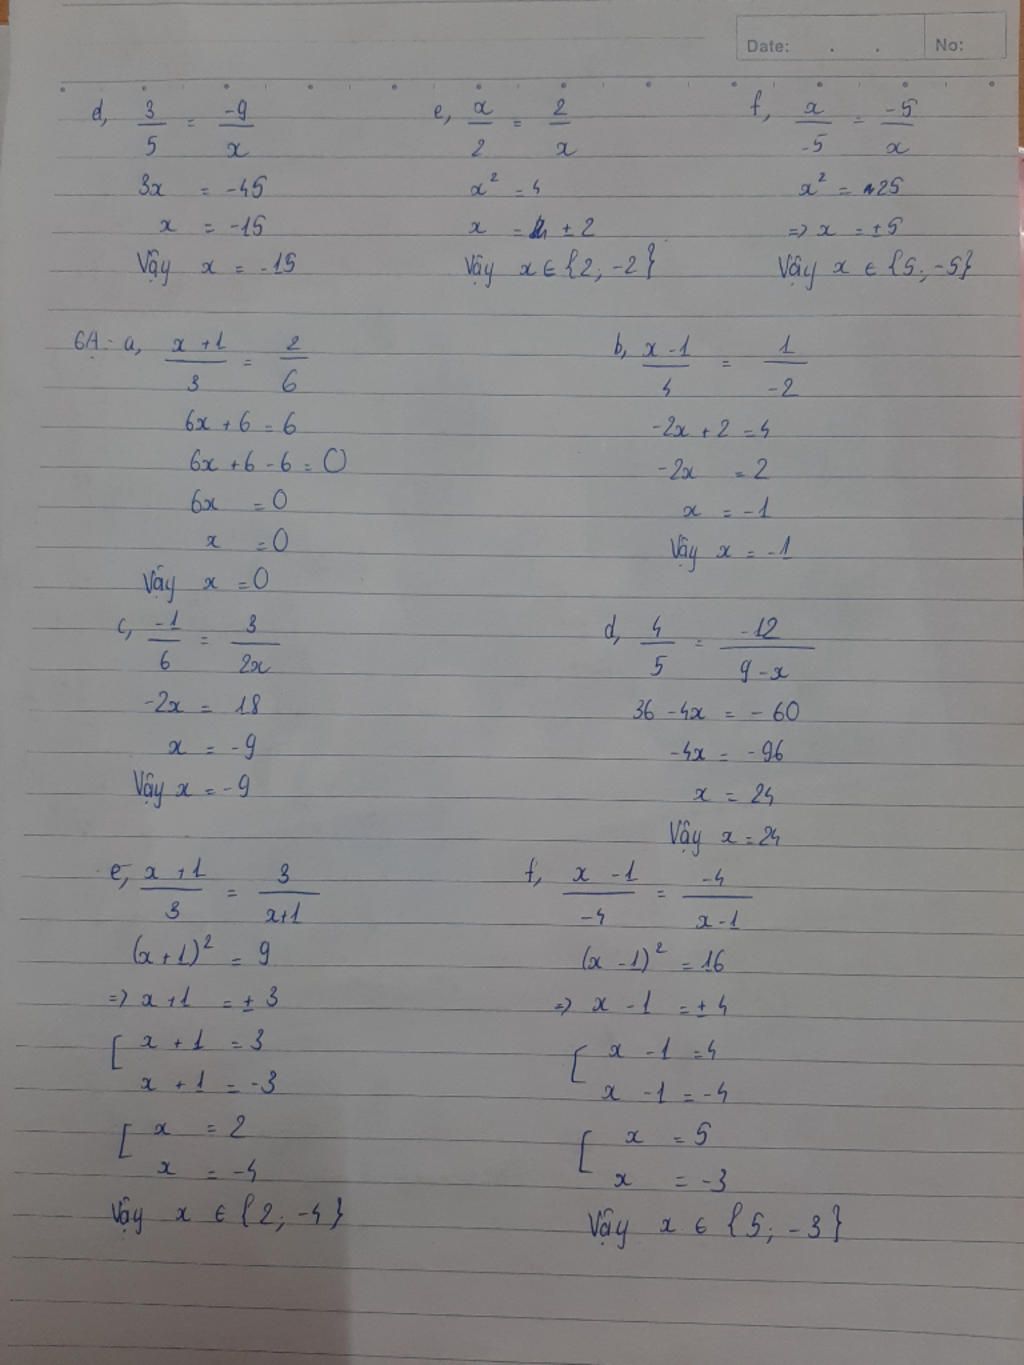 Date: . . No:
d, 3/5 = -9/x
3x = -45
x = -15
Vậy x = -15
e, x/2 = 2/x
x² = 4
x = ± 2
Vậy x ∈ {2; -2}
f, x/-5 = -5/x
x² = 25
=> x = ± 5
Vậy x ∈ {5; -5}
6A: a, x+1/3 = 2/6
6x + 6 = 6
6x + 6 - 6 = 0
6x = 0
x = 0
Vậy x = 0
b, x-1/4 = 1/-2
-2x + 2 = 4
-2x = 2
x = -1
Vậy x = -1
c, -1/6 = 3/2x
-2x = 18
x = -9
Vậy x = -9
d, 4/5 = -12/9-x
36 - 4x = -60
-4x = -96
x = 24
Vậy x = 24
e, x+1/3 = 3/x+1
(x+1)² = 9
=> x+1 = ± 3
[ x + 1 = 3
x + 1 = -3
[ x = 2
x = -4
Vậy x ∈ {2; -4}
f, x-1/-4 = -4/x-1
(x-1)² = 16
=> x - 1 = ± 4
[ x - 1 = 4
x - 1 = -4
[ x = 5
x = -3
Vậy x ∈ {5; -3}